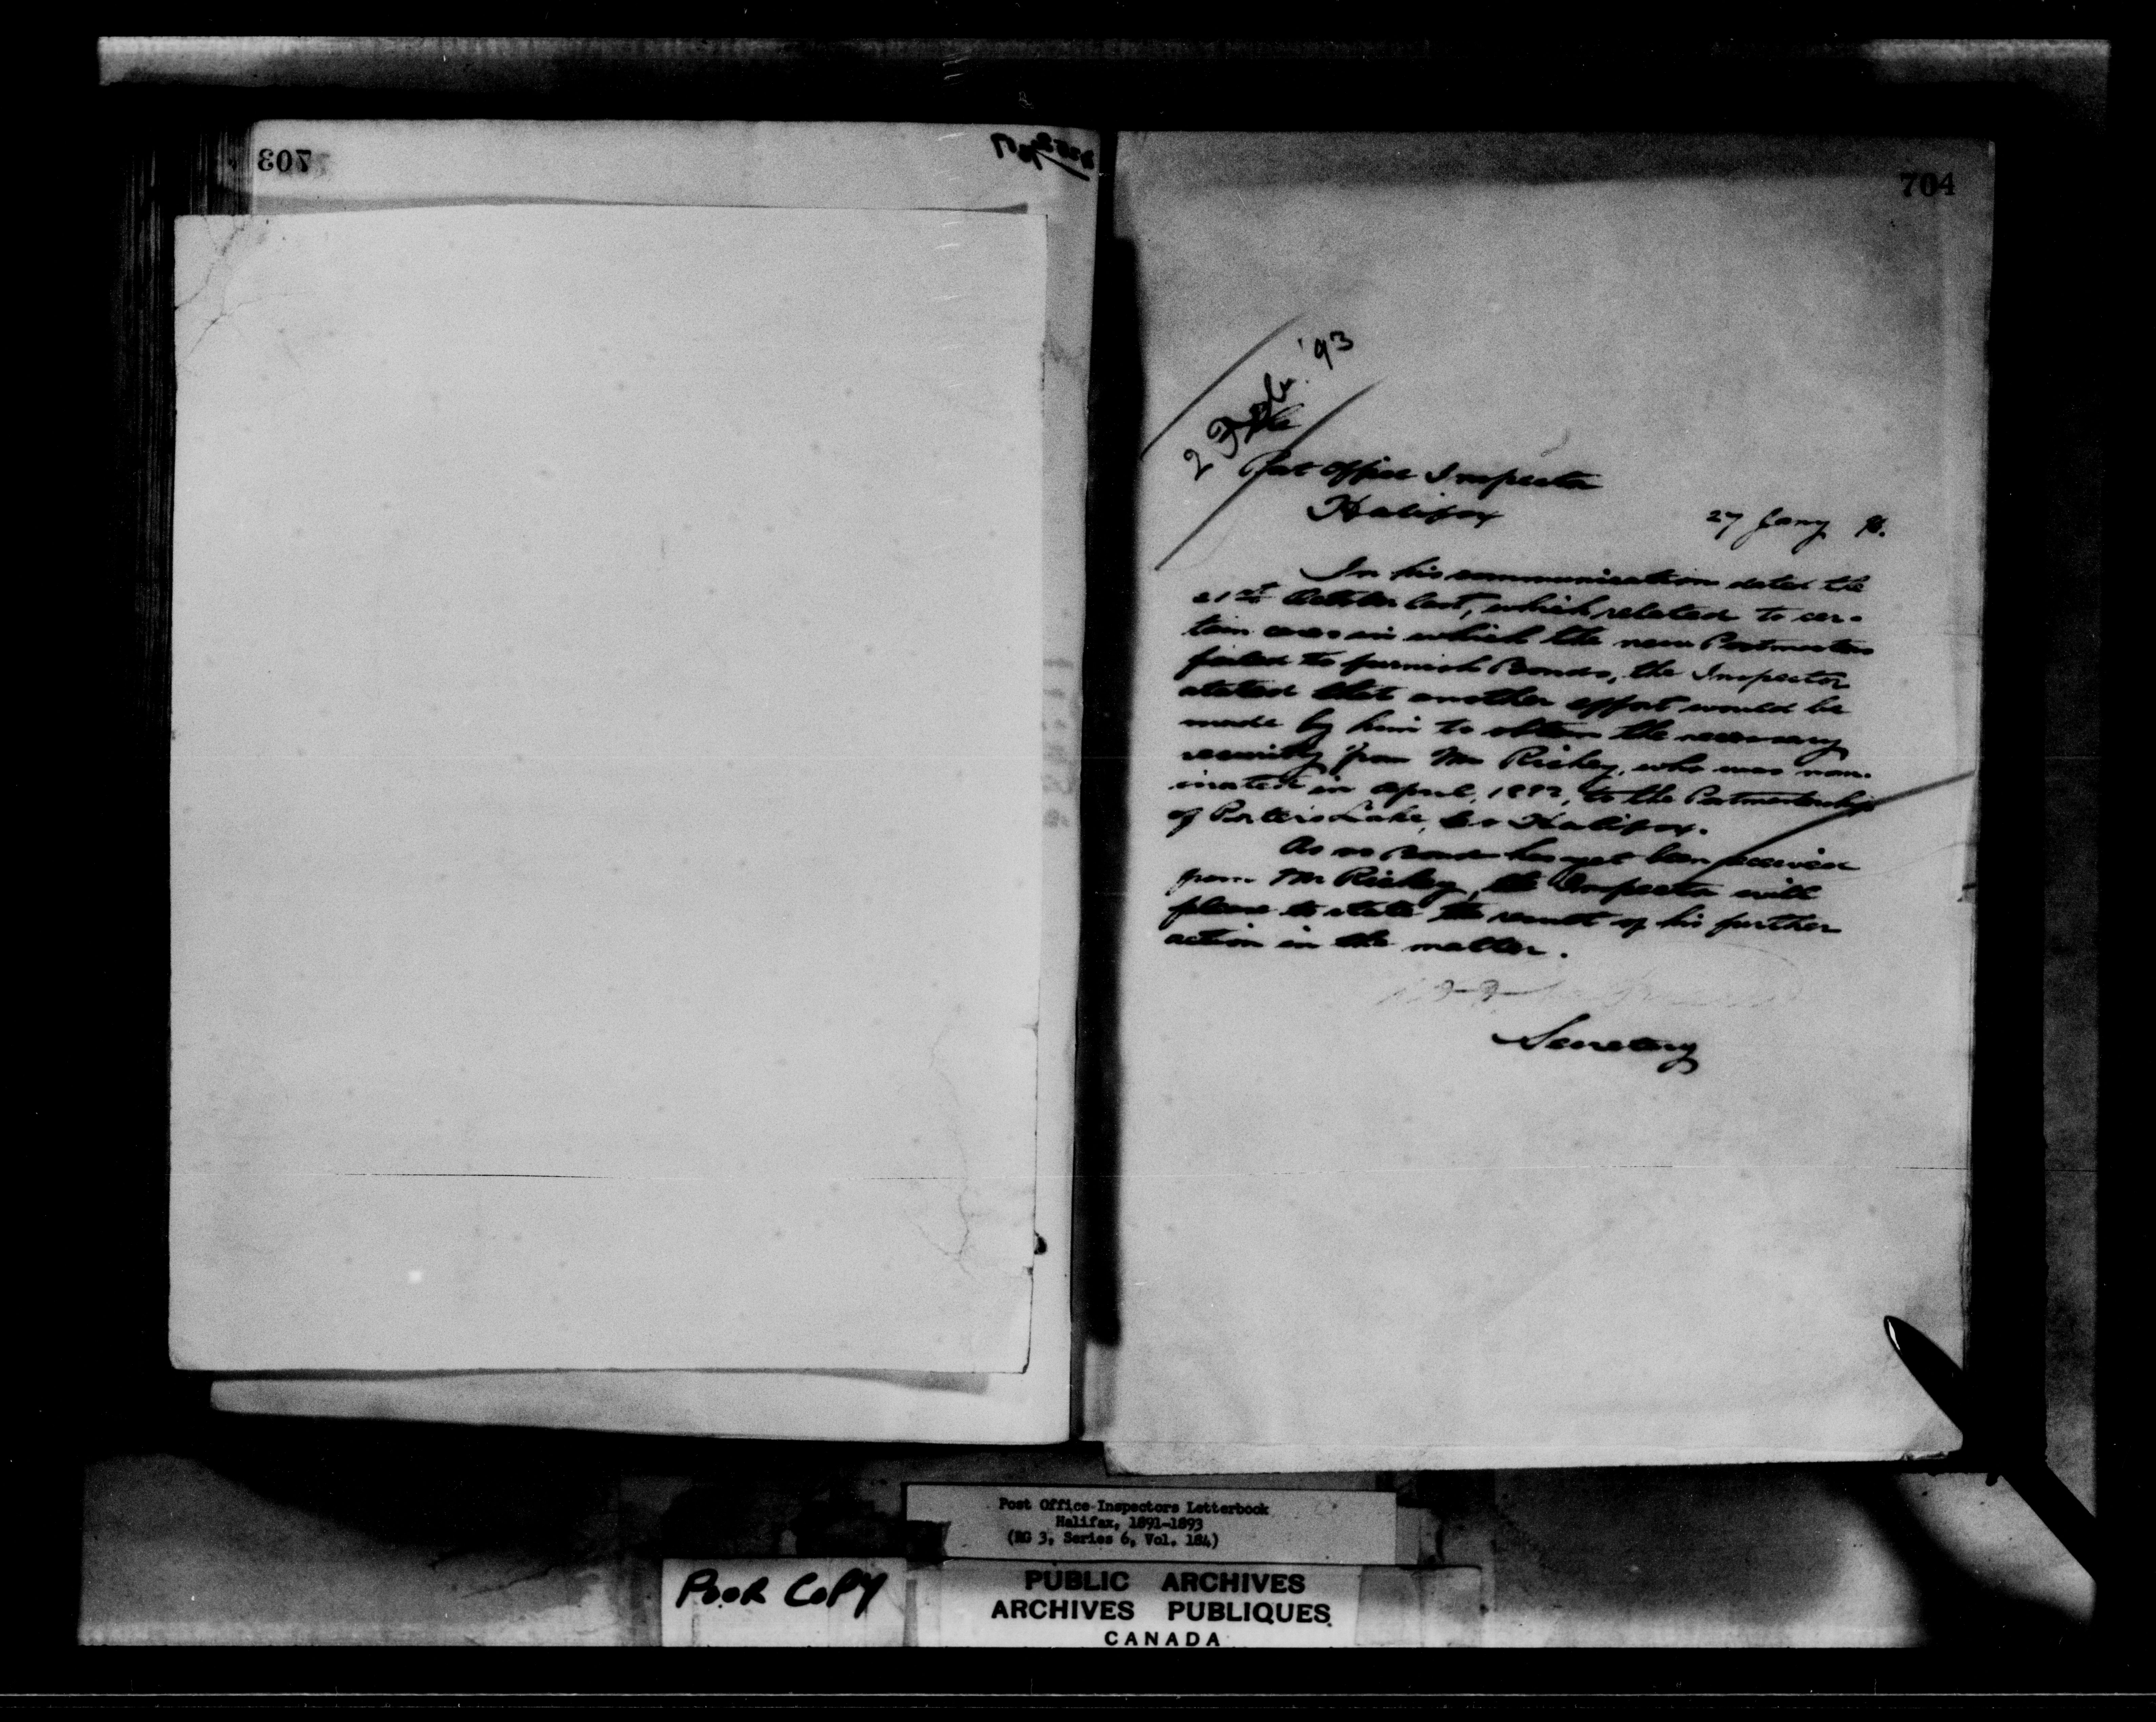 703
704
2 Feby. '93
The
Post Office Inspector
Halifax
27 Jany 93.
In his communication dated the
21st October last, which related to cer-
tain cases in which the new Postmasters
failed to furnish Bonds, the Inspector
stated that another effort would be
made by him to obtain the necessary
security from Mr Richey, who was nom-
inated in April, 1892, to the Postmastership
of Porter's Lake, Co Halifax.
As no Bond has yet been received
from Mr Richey, the Inspector will
please to state the result of his further
action in the matter.
Secretary
Post Office Inspectors Letterbook
Halifax, 1891-1893
(RG 3, Series 6, Vol. 184)
POOR COPY
PUBLIC ARCHIVES
ARCHIVES PUBLIQUES
CANADA